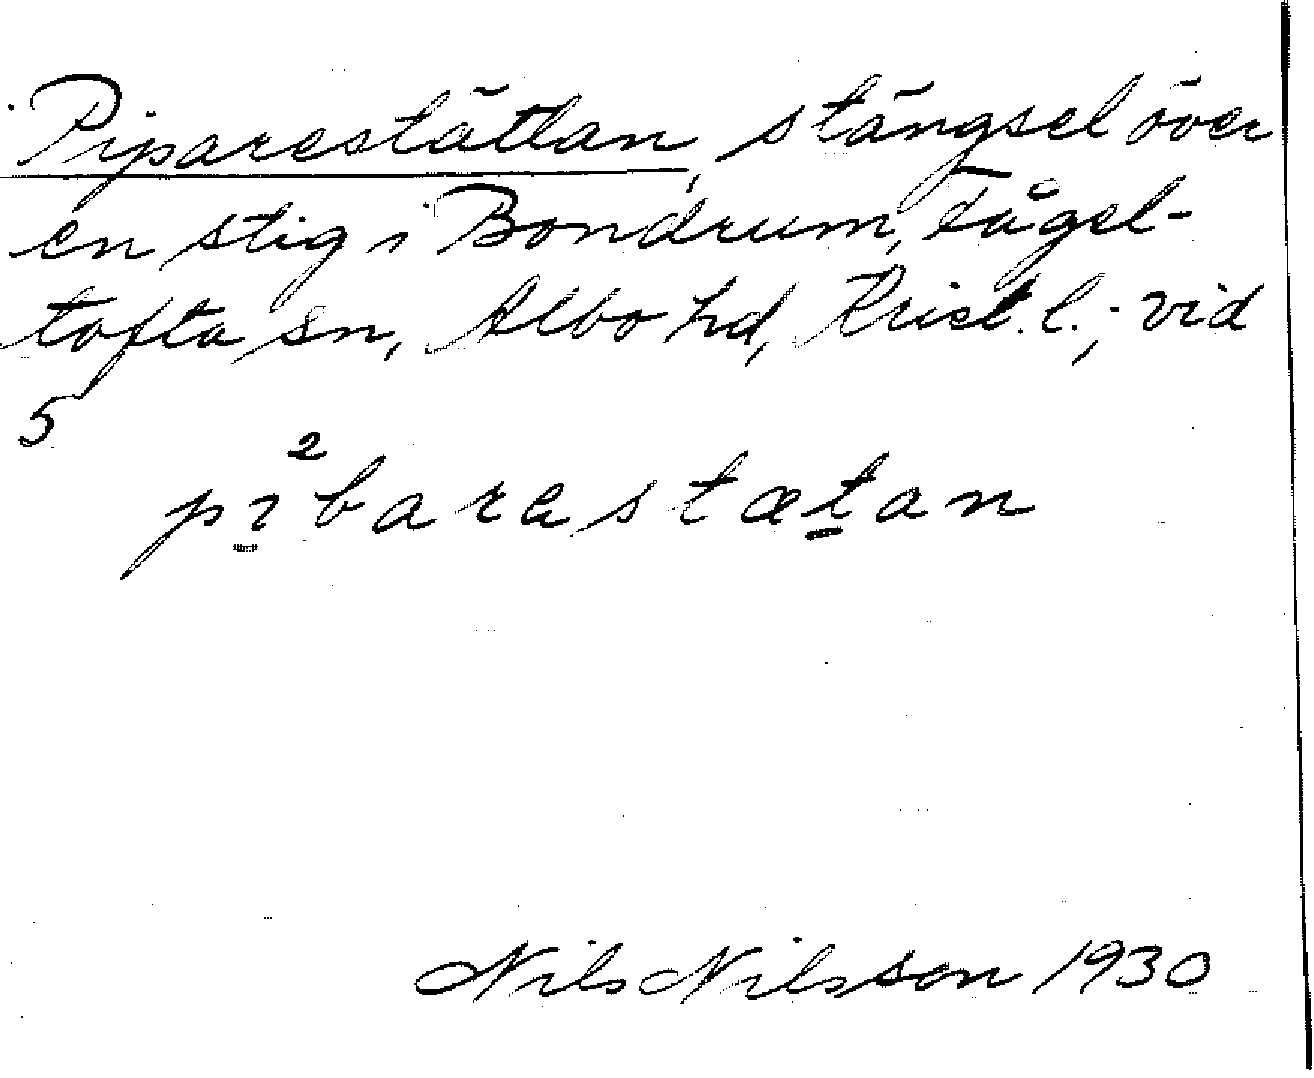 Piparestättan, stängsel över
en stig i Bondrum, Fågel-
tofta sn, Albo hd, Krist. l.; vid
5
pi²barastætan
Nils Nilsson 1930